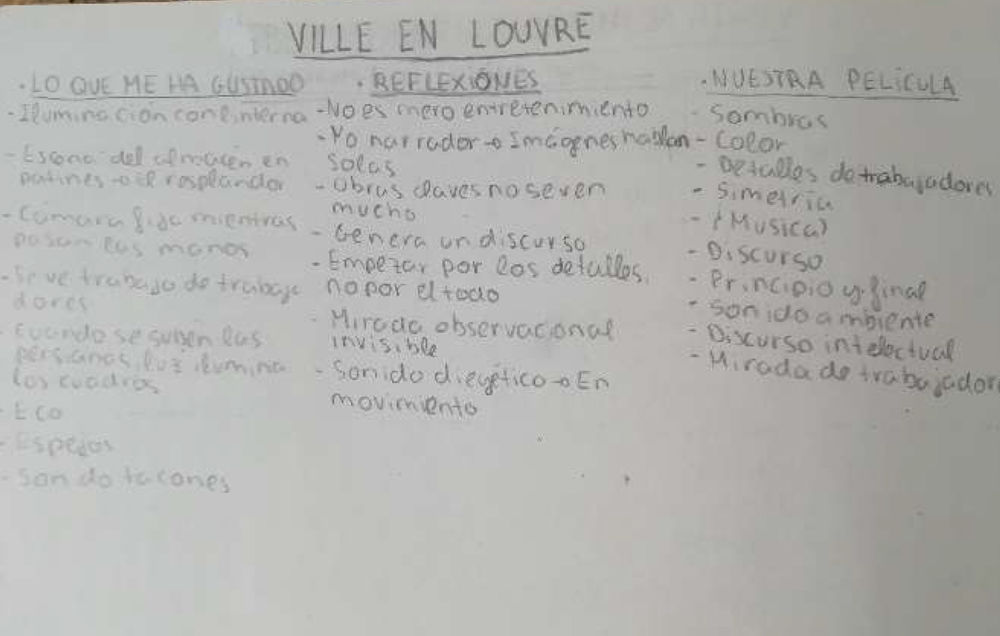 VILLE EN LOUVRE
· LO QUE ME HA GUSTADO
- Iluminación con linterna
- Escena del almacén en
patines → el resplandor
- Cámara fija mientras
pasan las manos
- Se ve trabajo de trabaja
dores
- Cuando se suben las
persianas, luz ilumina
los cuadros
- Eco
- Espejos
- Sonido tacones
· REFLEXIONES
- No es mero entretenimiento
- No narrador → Imágenes hablan
solas
- Obras claves no se ven
mucho
- Genera un discurso
- Empezar por los detalles,
no por el todo
- Mirada observacional
invisible
- Sonido diegético → En
movimiento
· NUESTRA PELÍCULA
- Sombras
- Color
- Detalles de trabajadores
- Simetría
- (Musica)
- Discurso
- Principio y final
- Sonido ambiente
- Discurso intelectual
- Mirada de trabajador